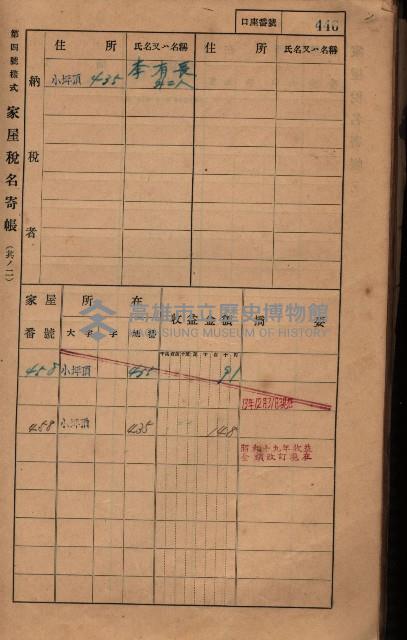 口座番號 446
第四號樣式 家屋稅名寄帳 (共ノ二)
住所 氏名又ハ名稱 住所 氏名又ハ名稱
納稅者
小坪頂 435 李有長
外二人
家屋番號 所在 收益金額 摘要
大字 字 地番
458 小坪頂 435 91
458 小坪頂 435 148
昭和十九年收益
金額改訂
高雄市立歷史博物館
KAOHSIUNG MUSEUM OF HISTORY